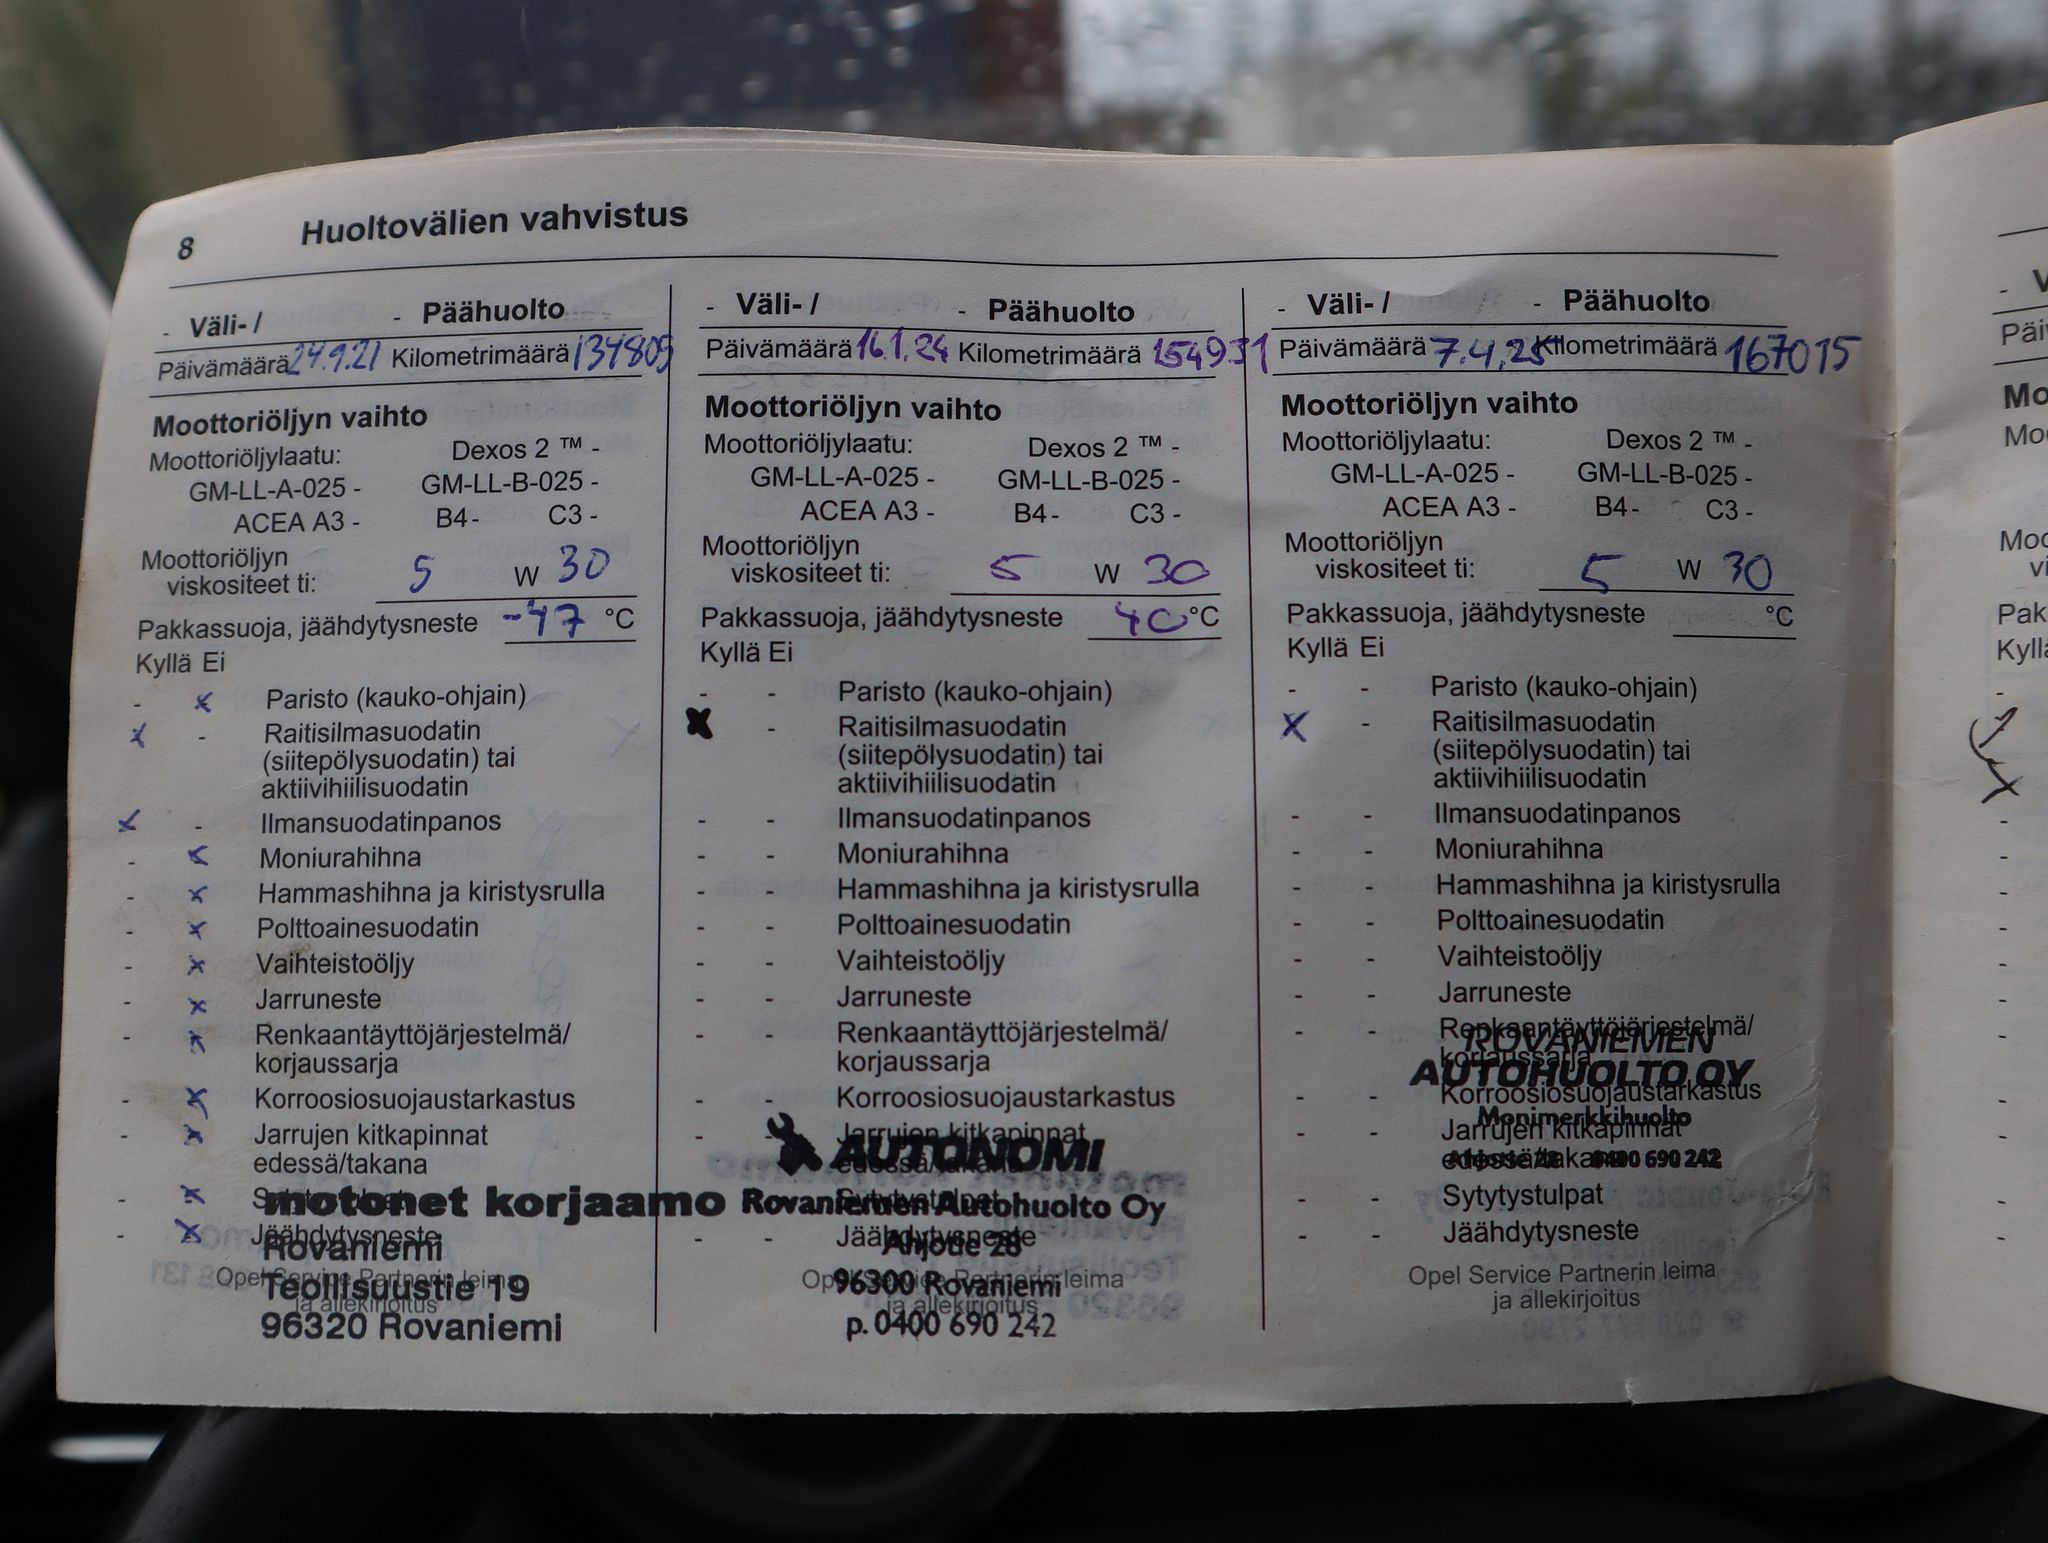 8 Huoltovälien vahvistus
- Väli- / - Päähuolto
Päivämäärä 24.9.21 Kilometrimäärä 134809
Moottoriöljyn vaihto
Moottoriöljylaatu: Dexos 2 ™ -
GM-LL-A-025 - GM-LL-B-025 -
ACEA A3 - B4 - C3 -
Moottoriöljyn
viskositeet ti: 5 W 30
Pakkassuoja, jäähdytysneste -47 °C
Kyllä Ei
- x Paristo (kauko-ohjain)
x - Raitisilmasuodatin
(siitepölysuodatin) tai
aktiivihiilisuodatin
x - Ilmansuodatinpanos
- x Moniurahihna
- x Hammashihna ja kiristysrulla
- x Polttoainesuodatin
- x Vaihteistoöljy
- x Jarruneste
- x Renkaantäyttöjärjestelmä/
korjaussarja
- x Korroosiosuojaustarkastus
- x Jarrujen kitkapinnat
edessä/takana
- x
motonet korjaamo
- x Jäähdytysneste
Rovaniemi
Opel Service Partnerin leima
Teollisuustie 19
ja allekirjoitus
96320 Rovaniemi
- Väli- / - Päähuolto
Päivämäärä 16.1.24 Kilometrimäärä 154931
Moottoriöljyn vaihto
Moottoriöljylaatu: Dexos 2 ™ -
GM-LL-A-025 - GM-LL-B-025 -
ACEA A3 - B4 - C3 -
Moottoriöljyn
viskositeet ti: 5 W 30
Pakkassuoja, jäähdytysneste 40 °C
Kyllä Ei
- - Paristo (kauko-ohjain)
x - Raitisilmasuodatin
(siitepölysuodatin) tai
aktiivihiilisuodatin
- - Ilmansuodatinpanos
- - Moniurahihna
- - Hammashihna ja kiristysrulla
- - Polttoainesuodatin
- - Vaihteistoöljy
- - Jarruneste
- - Renkaantäyttöjärjestelmä/
korjaussarja
- - Korroosiosuojaustarkastus
- - Jarrujen kitkapinnat
edessä/takana
AUTONOMI
- - Sytytystulpat
Rovaniemen Autohuolto Oy
- - Jäähdytysneste
Ahjotie 28
Opel Service Partnerin leima
96300 Rovaniemi
ja allekirjoitus
p. 0400 690 242
- Väli- / - Päähuolto
Päivämäärä 7.4.25 Kilometrimäärä 167015
Moottoriöljyn vaihto
Moottoriöljylaatu: Dexos 2 ™ -
GM-LL-A-025 - GM-LL-B-025 -
ACEA A3 - B4 - C3 -
Moottoriöljyn
viskositeet ti: 5 W 30
Pakkassuoja, jäähdytysneste °C
Kyllä Ei
- - Paristo (kauko-ohjain)
x - Raitisilmasuodatin
(siitepölysuodatin) tai
aktiivihiilisuodatin
- - Ilmansuodatinpanos
- - Moniurahihna
- - Hammashihna ja kiristysrulla
- - Polttoainesuodatin
- - Vaihteistoöljy
- - Jarruneste
- - Renkaantäyttöjärjestelmä/
ROVANIEMEN
korjaussarja
AUTOHUOLTO OY
- - Korroosiosuojaustarkastus
Monimerkkihuolto
- - Jarrujen kitkapinnat
edessä/takana
0400 690 242
- - Sytytystulpat
- - Jäähdytysneste
Opel Service Partnerin leima
ja allekirjoitus